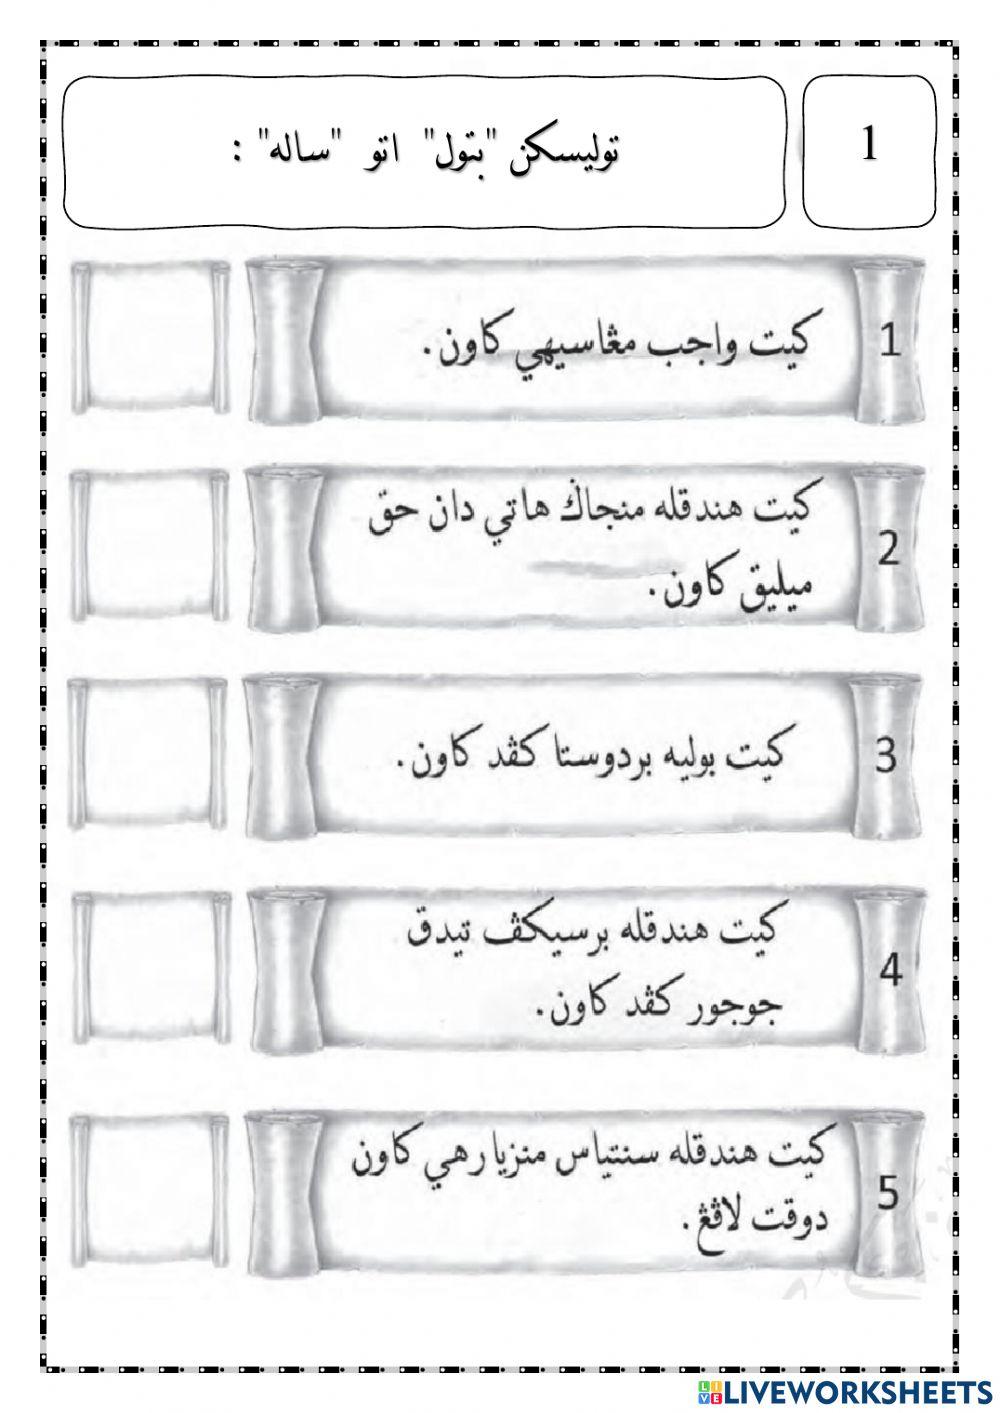 1
توليسکن "بتول" اتو "ساله" :
1
کيت واجب مڠاسيهي کاون.
2
کيت هندقله منجاݢ هاتي دان حق
ميليق کاون.
3
کيت بوليه بردوستا کڤد کاون.
4
کيت هندقله برسيکڤ تيدق
جوجور کڤد کاون.
5
کيت هندقله سنتياس منزيارهي کاون
دوقت لاڤڠ.
LIVEWORKSHEETS